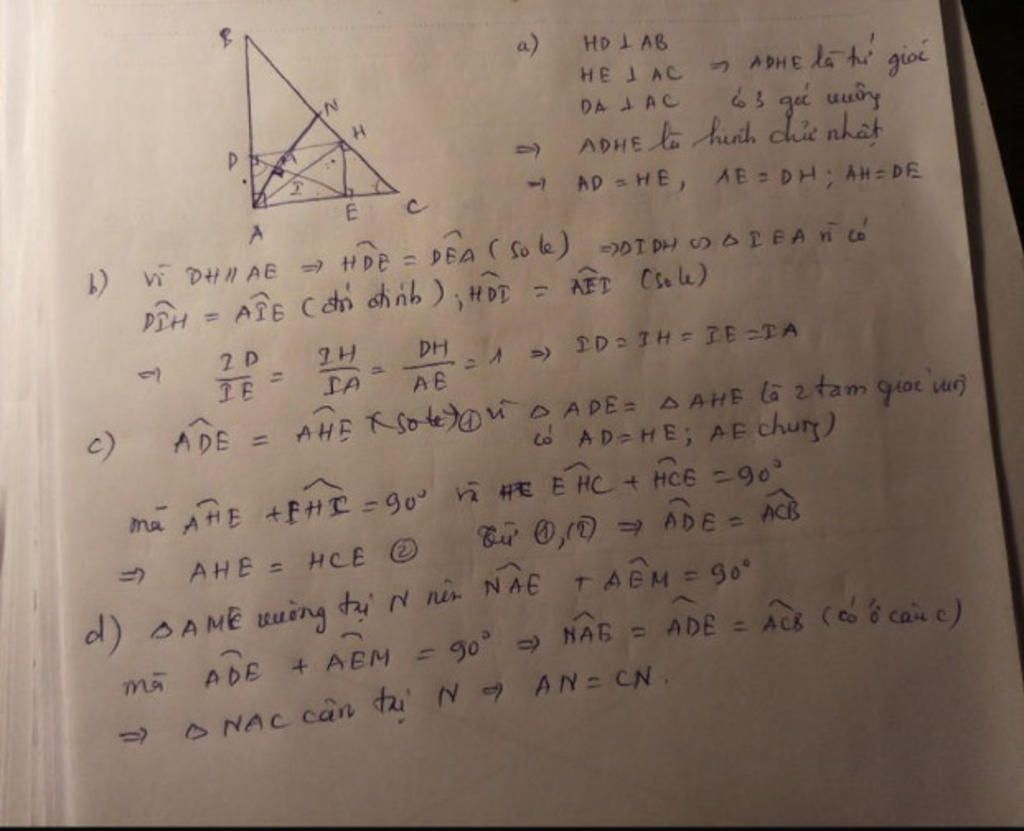 B
N
H
D
M
I
E
C
A
a) HD ⊥ AB
HE ⊥ AC ⇒ ADHE là tứ giác
DA ⊥ AC có 3 góc vuông
⇒ ADHE là hình chữ nhật
⇒ AD = HE, AE = DH ; AH = DE
b) Vì DH // AE ⇒ HDE^ = DEA^ (so le) ⇒ DIDH ∽ Δ IEA vì có
DIH^ = AIE^ (đối đỉnh), HDI^ = AEI^ (so le)
⇒ ID/IE = IH/IA = DH/AE = 1 ⇒ ID = IH = IE = IA
c) ADE^ = AHE^ (so le) ① vì Δ ADE = Δ AHE là 2 tam giác
có AD = HE; AE chung)
mà AHE^ + EHC^ = 90° và EHC^ + HCE^ = 90°
⇒ AHE = HCE ② Từ ①, ② ⇒ ADE^ = ACB^
d) Δ AME vuông tại N nên NAE^ + AEM^ = 90°
mà ADE^ + AEM^ = 90° ⇒ NAE^ = ADE^ = ACB^ (có ở câu c)
⇒ Δ NAC cân tại N ⇒ AN = CN.